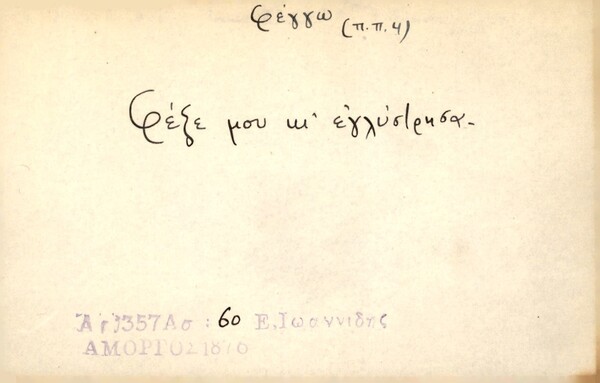 φέγγω
(π.π.4)
Φέξε μου κι' ἐγλύστρησα.
Ἀρ. 357 Ασ : 60 Ε. Ἰωαννίδης
ΑΜΟΡΓΟΣ 1876